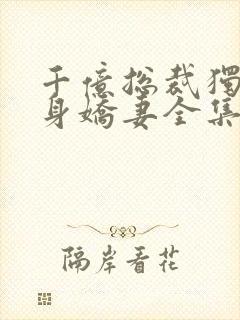 千億總裁獨
身嬌妻全集
隔岸看花